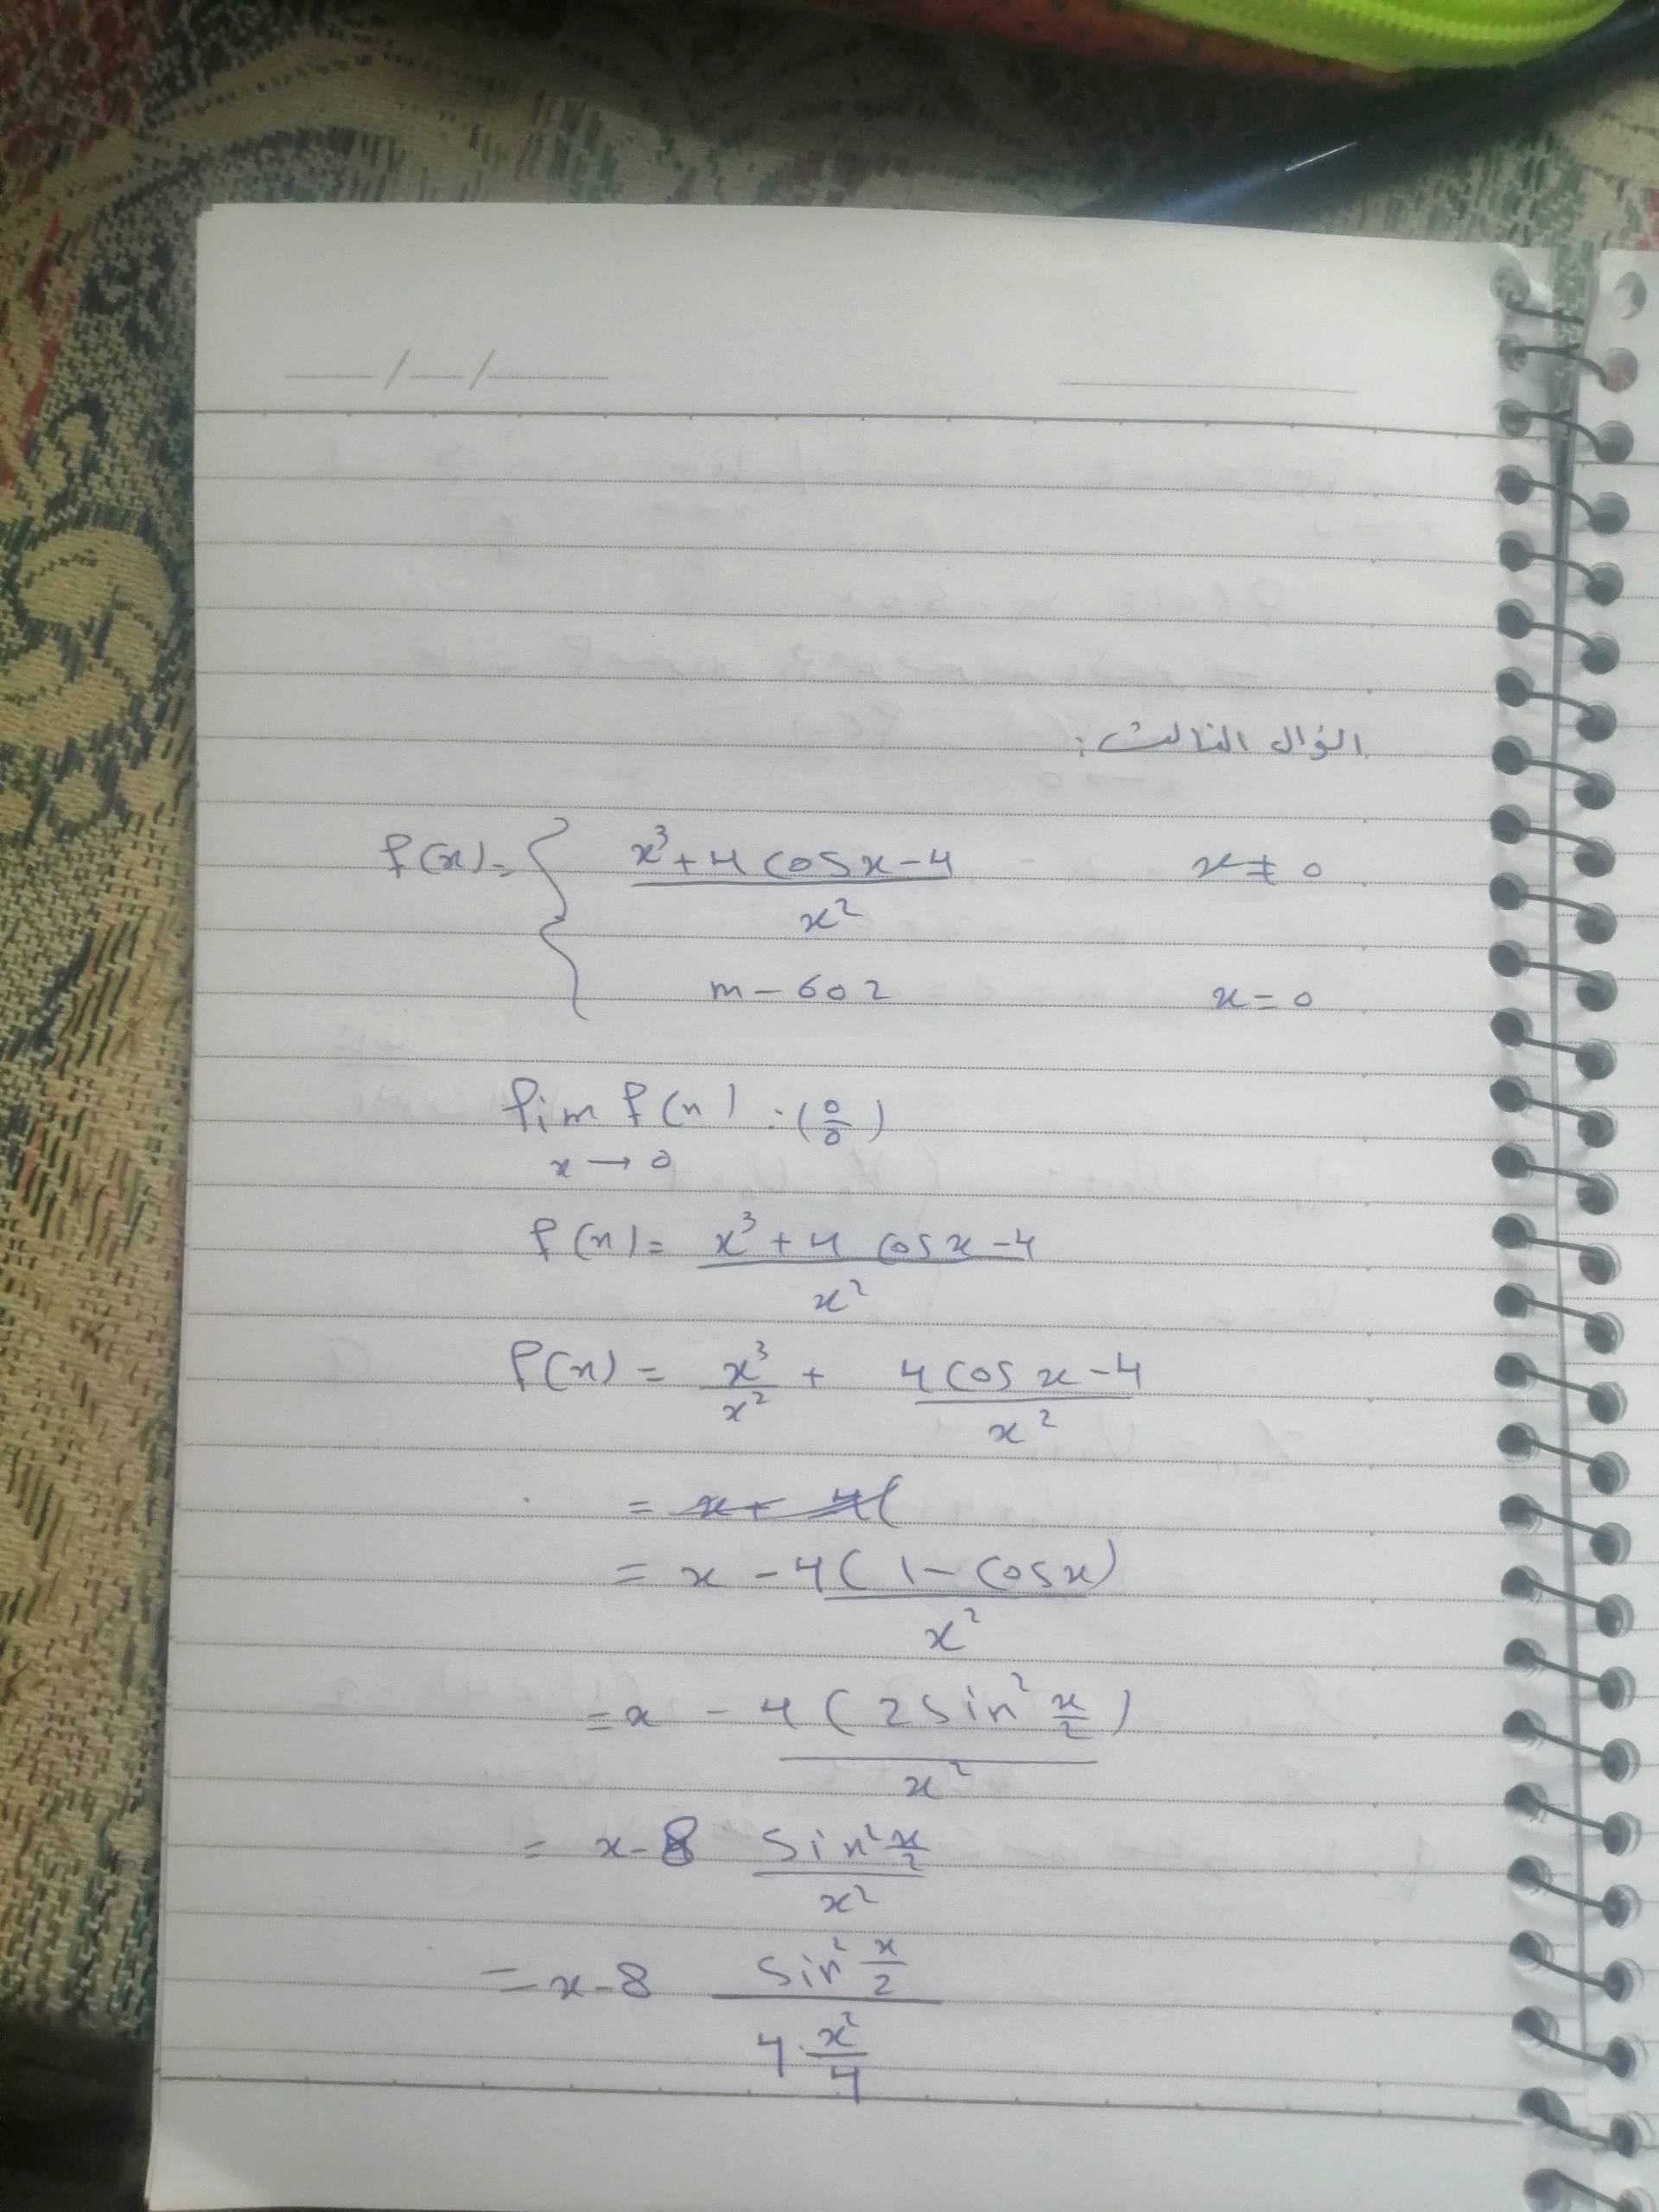 السؤال الثالث:
f(x) = { (x³ + 4 cos x - 4) / x²   x ≠ 0
m - 602   x = 0
lim f(x) : (0/0)
x → 0
f(x) = (x³ + 4 cos x - 4) / x²
f(x) = x³/x² + (4 cos x - 4) / x²
= x + 4(
= x - 4(1 - cos x) / x²
= x - 4(2 sin² x/2) / x²
= x - 8 (sin² x/2) / x²
= x - 8 (sin² x/2) / (4 · x²/4)